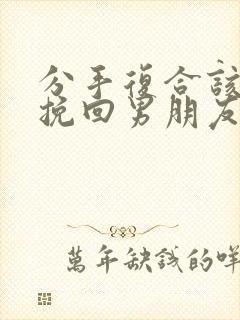 分手復合該
挽回男朋友
萬年缺錢的咩